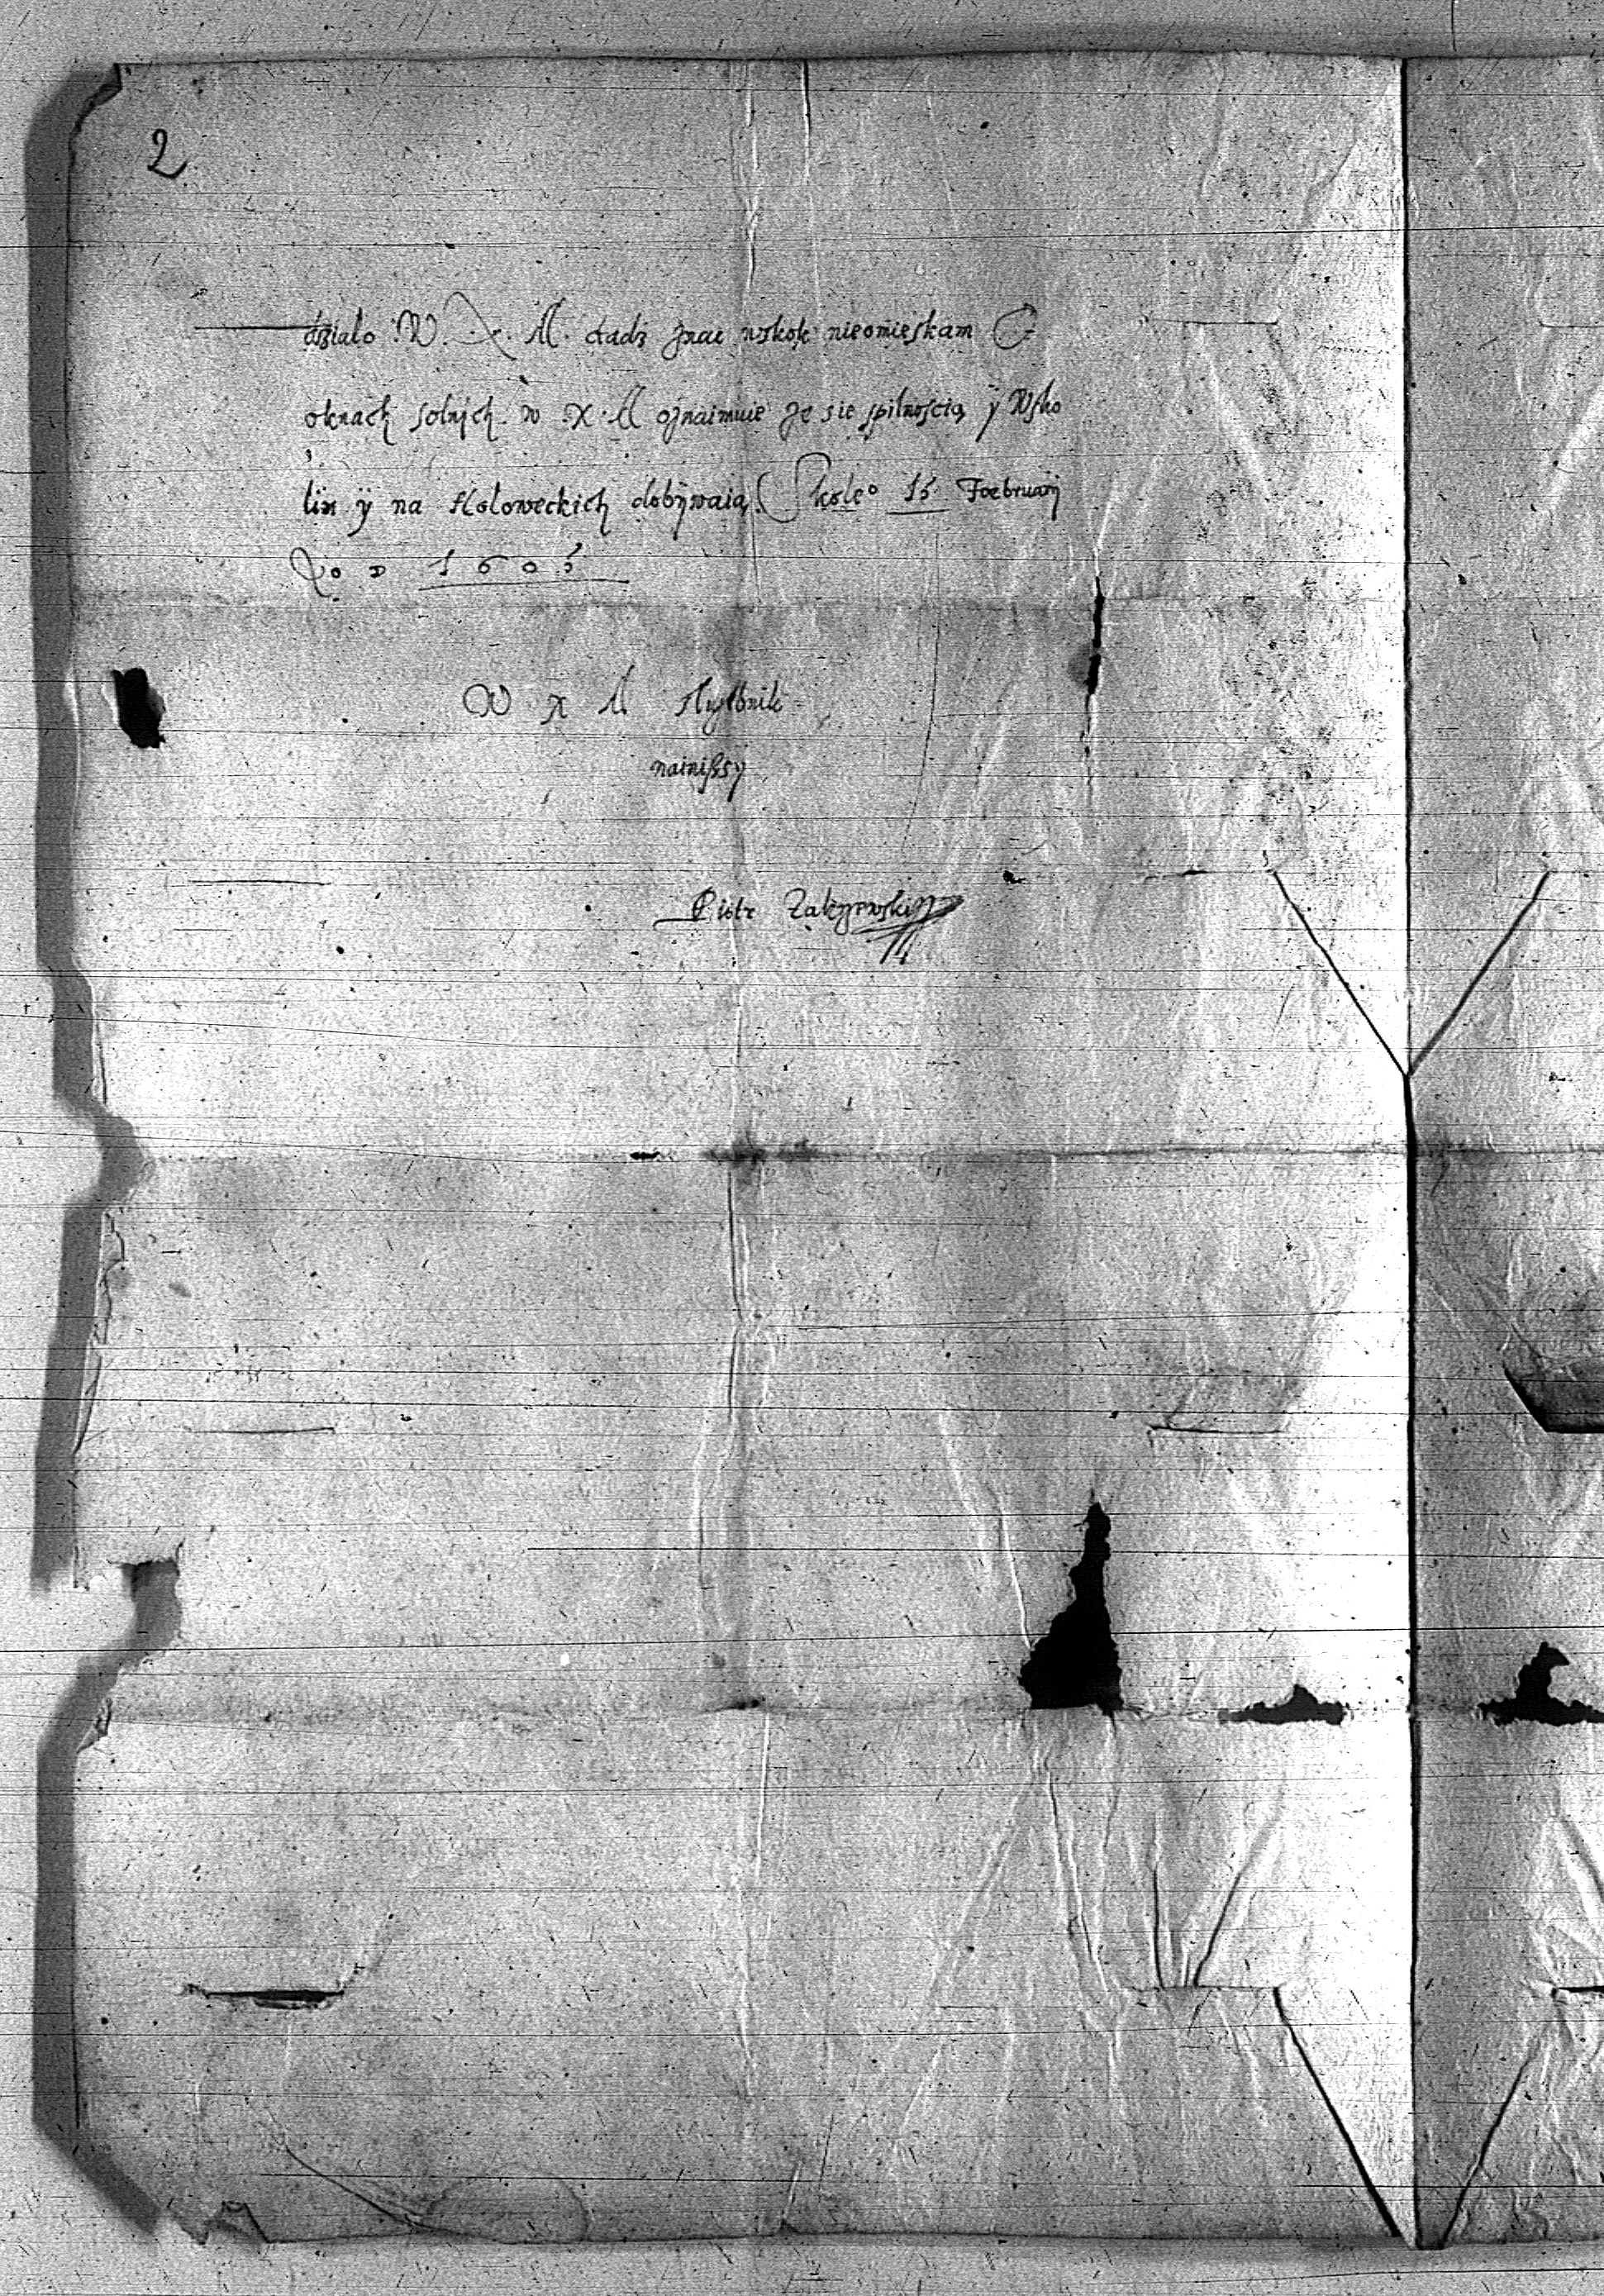 2
działo W. X. M. dadz znac wskok nieomieskam O
oknach solnjch w X M oznaimuie ze sie spilnoscią ÿ Wsko
lÿn ÿ na Hołoweckich dobÿwaią Skole 15 Februarÿ
Ro D 1605
W X M słuzebnik
nainißsÿ
Piotr Zakrzewskij